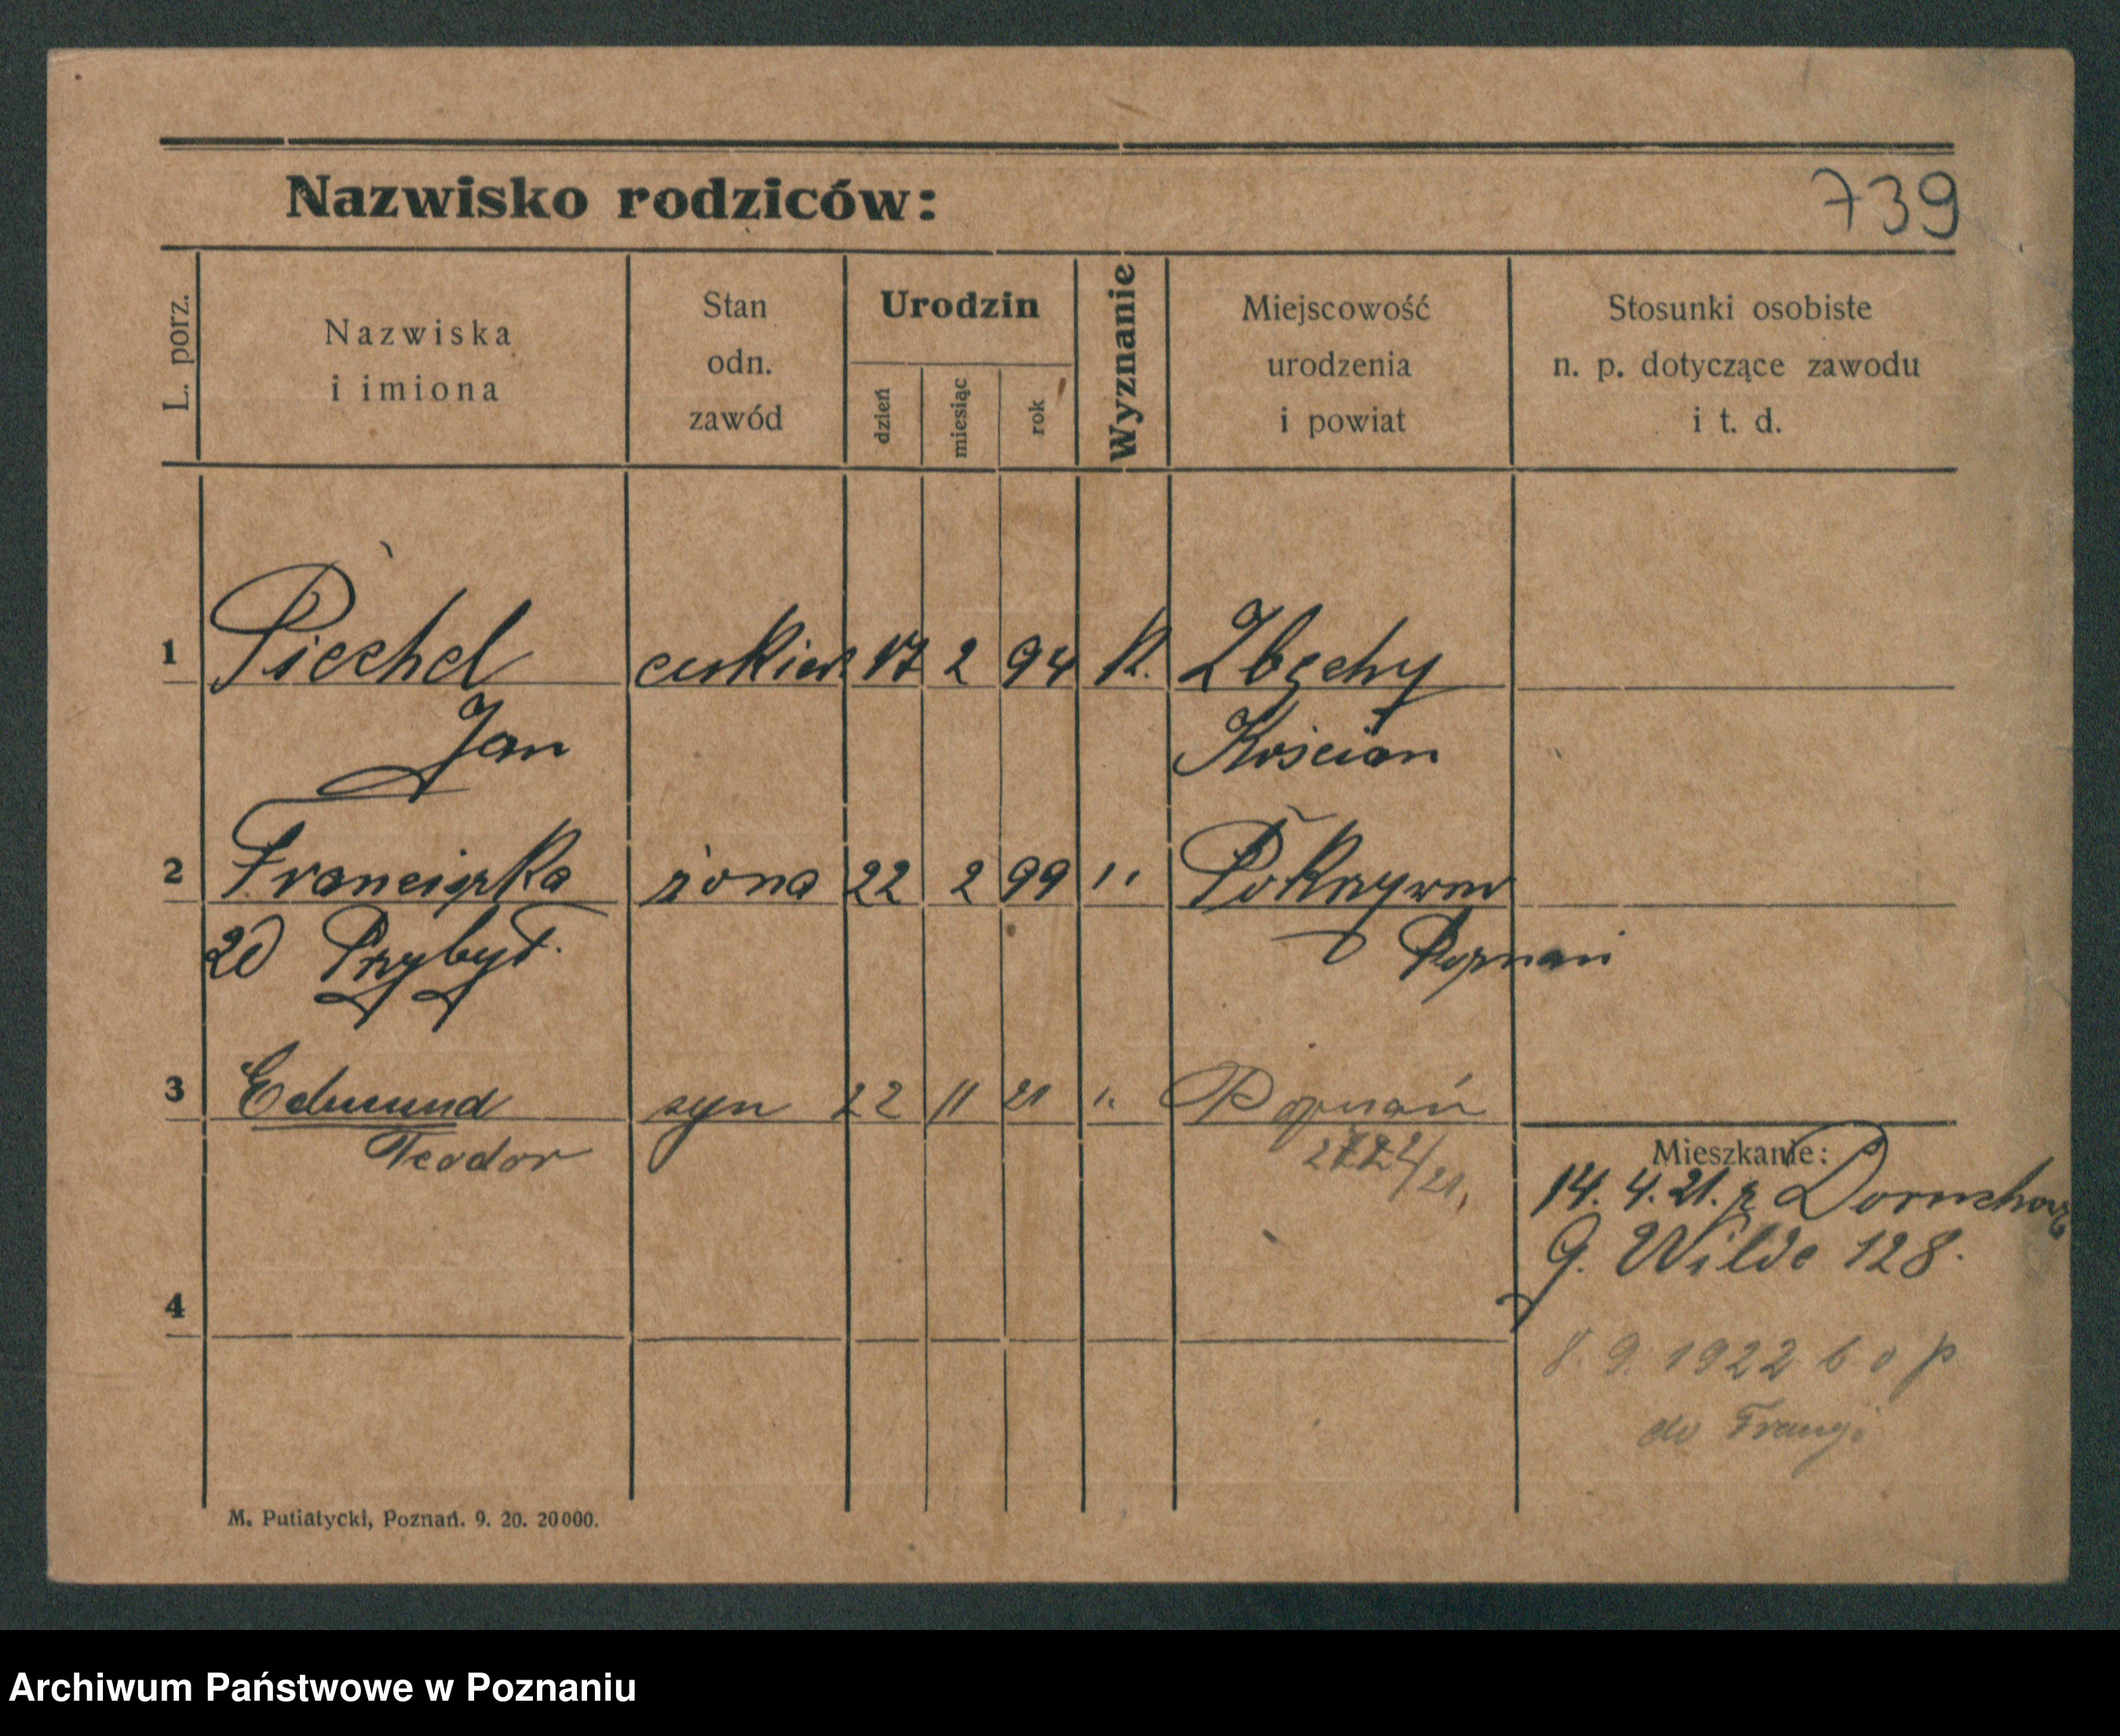 Nazwisko rodziców:
739
L. porz.
Nazwiska
i imiona
Stan
odn.
zawód
Urodzin
dzień
miesiąc
rok
Wyznanie
Miejscowość
urodzenia
i powiat
Stosunki osobiste
n. p. dotyczące zawodu
i t. d.
1 Piechel cuskier 17 2 94 k. Zbęchy
Jan Kościan
2 Franciszka żona 22 2 99 " Pokrzywno
zd Przybył. Poznań
3 Edmund syn 22 11 21 " Poznań
Teodor
Mieszkanie:
14. 4. 21. z
G. Wilde 128.
4
8. 9. 1922 b o p
do Francji
M. Putiatycki, Poznań. 9. 20. 20000.
Archiwum Państwowe w Poznaniu